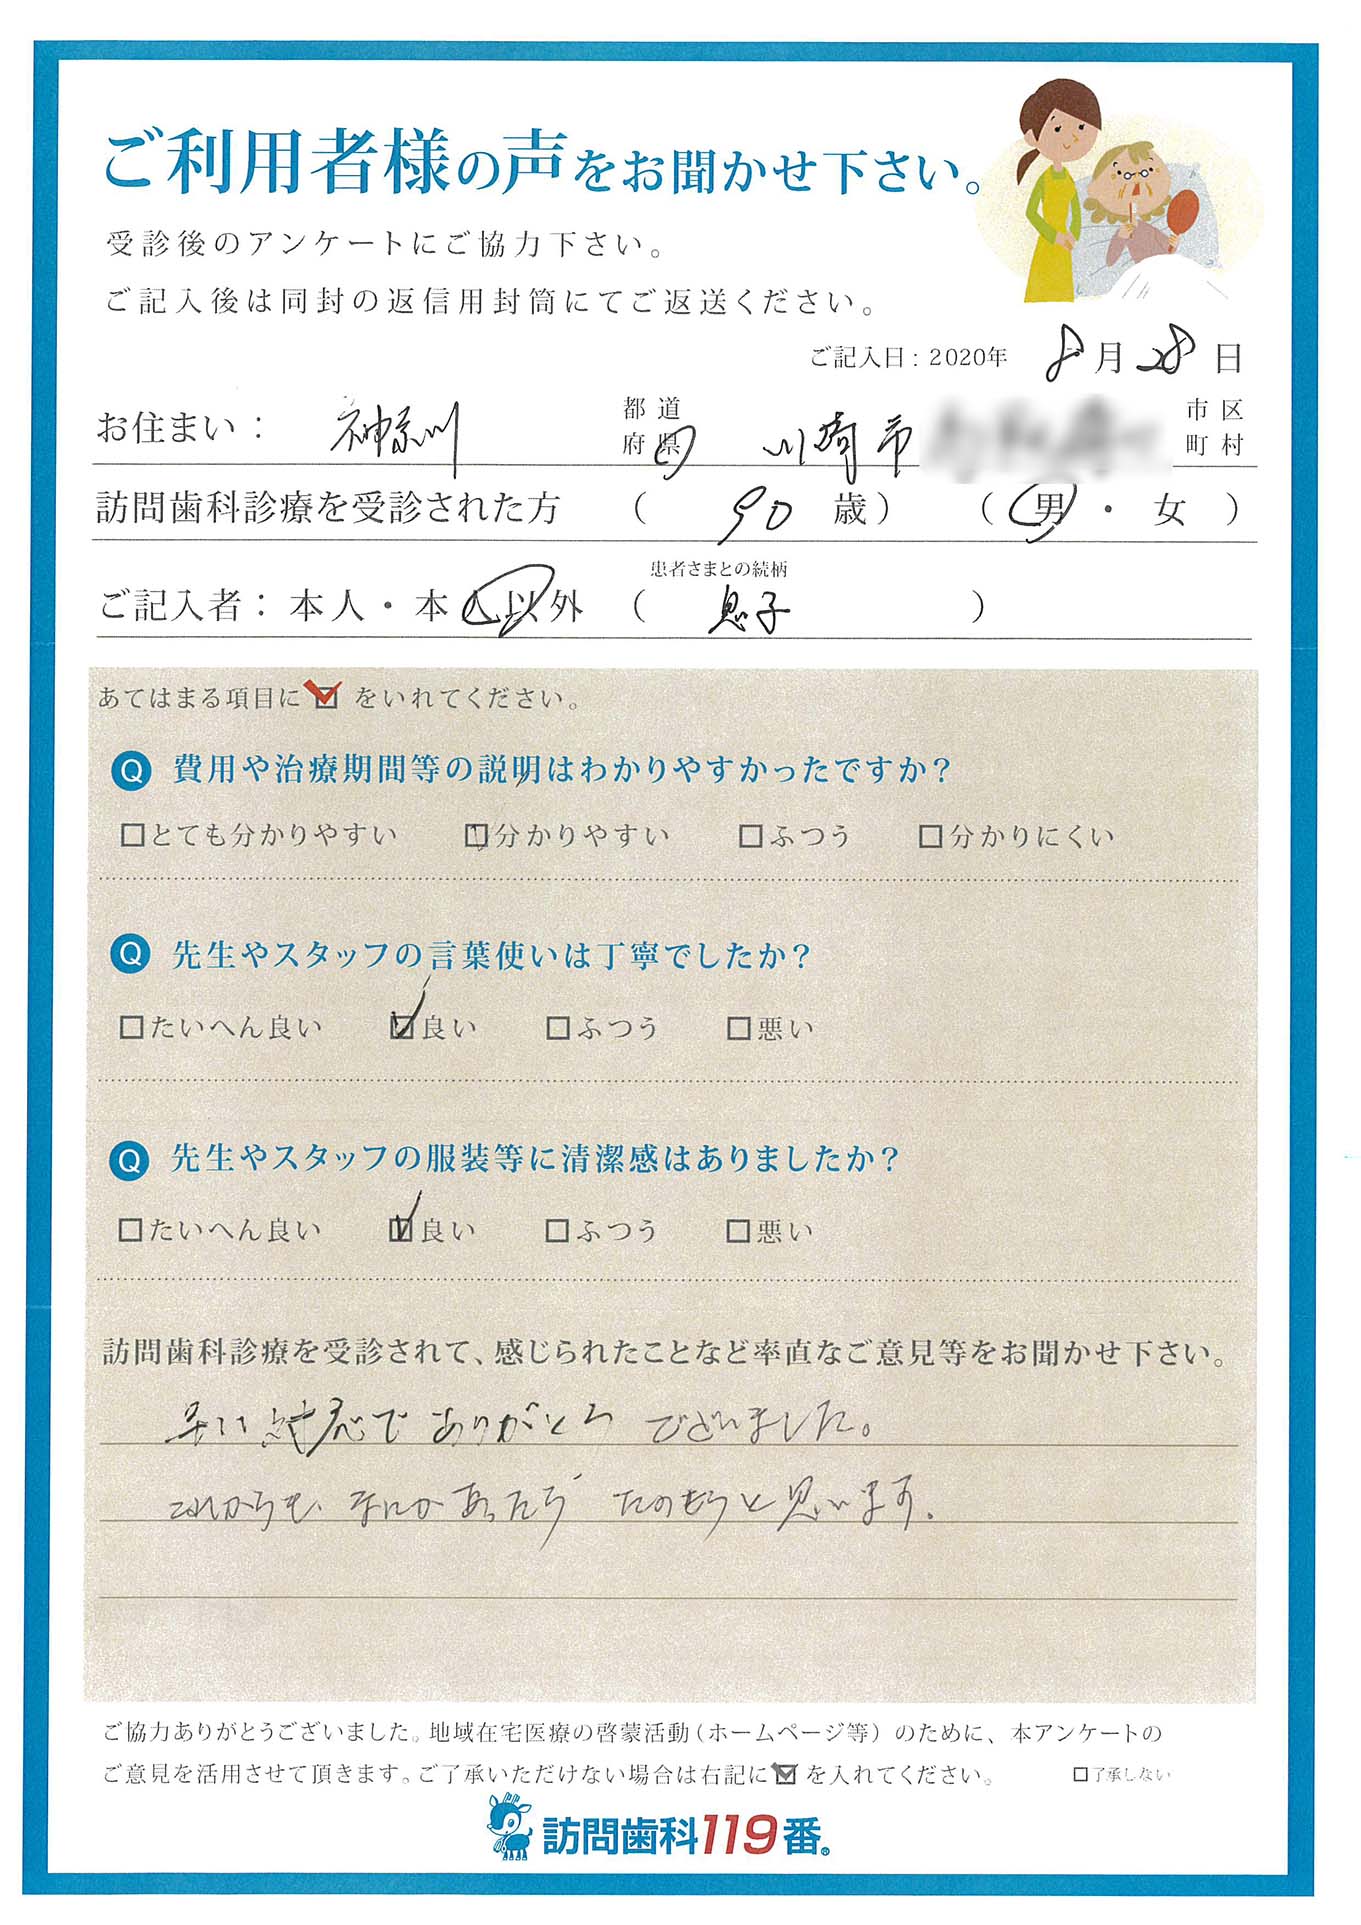 ご利用者様の声をお聞かせ下さい。
受診後のアンケートにご協力下さい。
ご記入後は同封の返信用封筒にてご返送ください。
ご記入日：2020年 8月28日
お住まい： 神奈川 都道府県 川崎市 市区町村
訪問歯科診療を受診された方 （ 90 歳） （ 男 ・ 女 ）
患者さまとの続柄
ご記入者：本人・本人以外 （ 息子 ）
あてはまる項目に☑をいれてください。
Q 費用や治療期間等の説明はわかりやすかったですか？
□とても分かりやすい ☑分かりやすい □ふつう □分かりにくい
Q 先生やスタッフの言葉使いは丁寧でしたか？
□たいへん良い ☑良い □ふつう □悪い
Q 先生やスタッフの服装等に清潔感はありましたか？
□たいへん良い ☑良い □ふつう □悪い
訪問歯科診療を受診されて、感じられたことなど率直なご意見等をお聞かせ下さい。
早い対応でありがとうございました。
これからも、なにかあったら たのもうと思います。
ご協力ありがとうございました。地域在宅医療の啓蒙活動（ホームページ等）のために、本アンケートの
ご意見を活用させて頂きます。ご了承いただけない場合は右記に☑を入れてください。 □了承しない
訪問歯科119番®